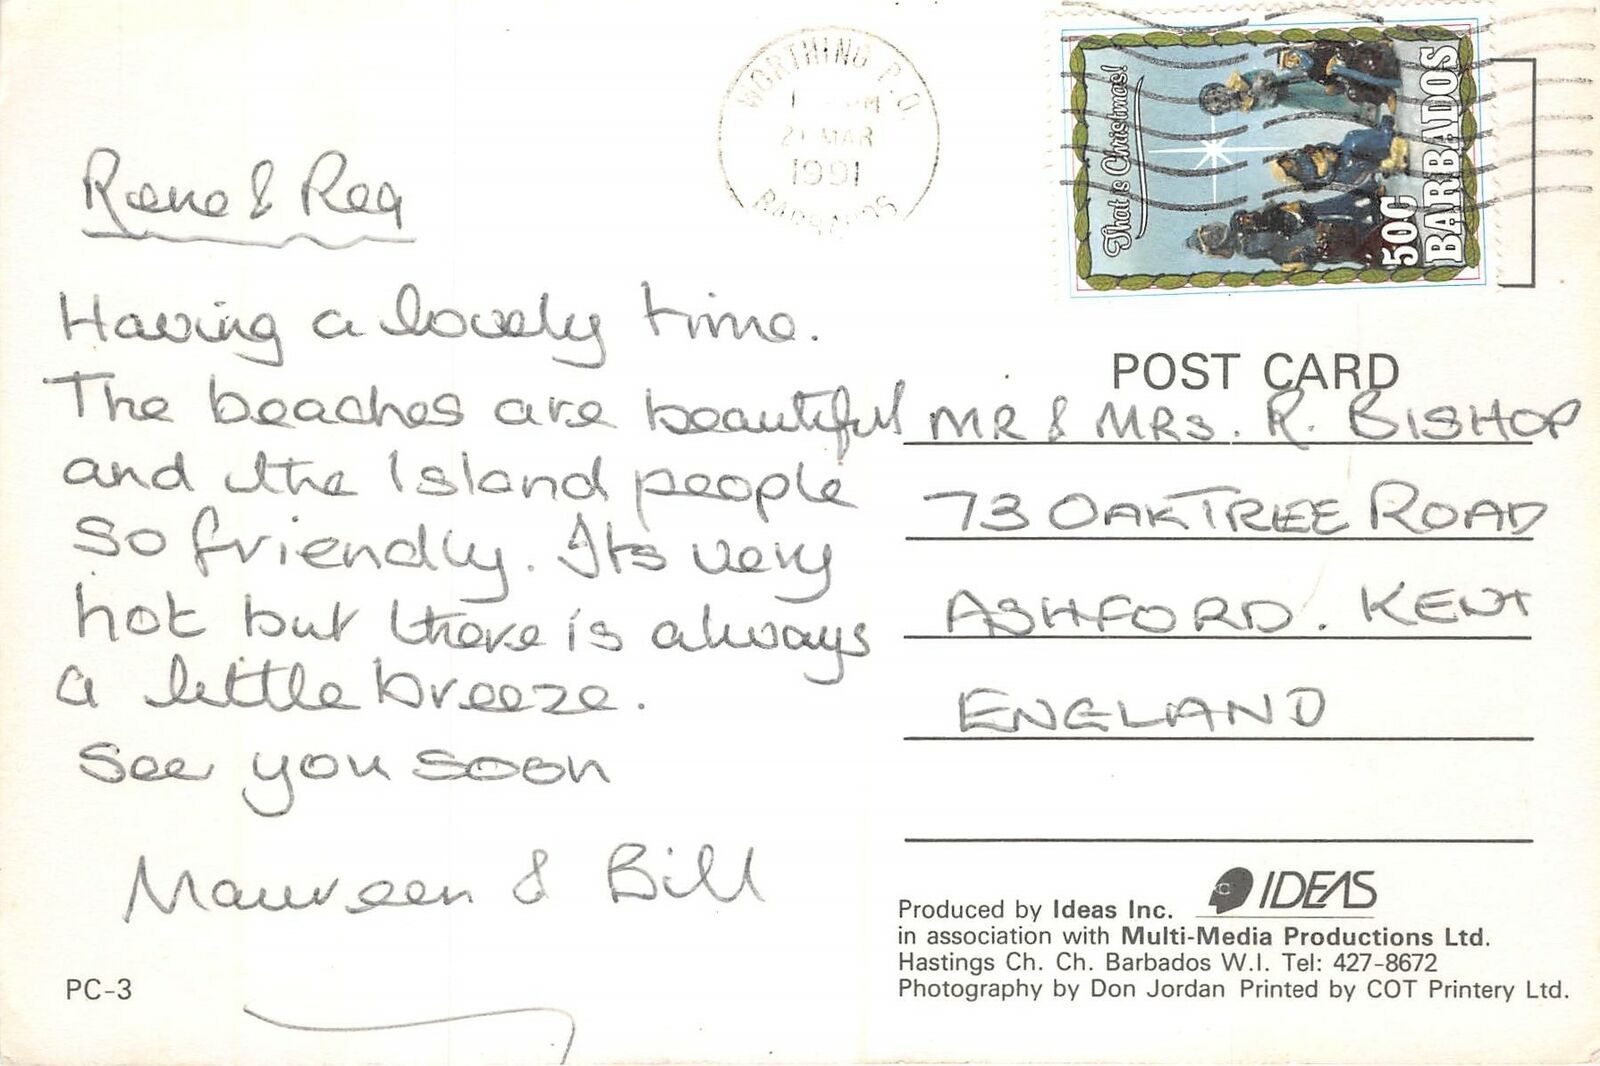 Rene & Reg
Having a lovely time.
The beaches are beautiful
and the Island people
so friendly. Its very
hot but there is always
a little breeze.
See you soon
Maureen & Bill
PC-3
WORTHING P.O.
21 MAR
1991
BARBADOS
That is Christmas!
50c
BARBADOS
POST CARD
MR & MRS. R. BISHOP
73 OAKTREE ROAD
ASHFORD. KENT
ENGLAND
IDEAS
Produced by Ideas Inc.
in association with Multi-Media Productions Ltd.
Hastings Ch. Ch. Barbados W.I. Tel: 427-8672
Photography by Don Jordan Printed by COT Printery Ltd.